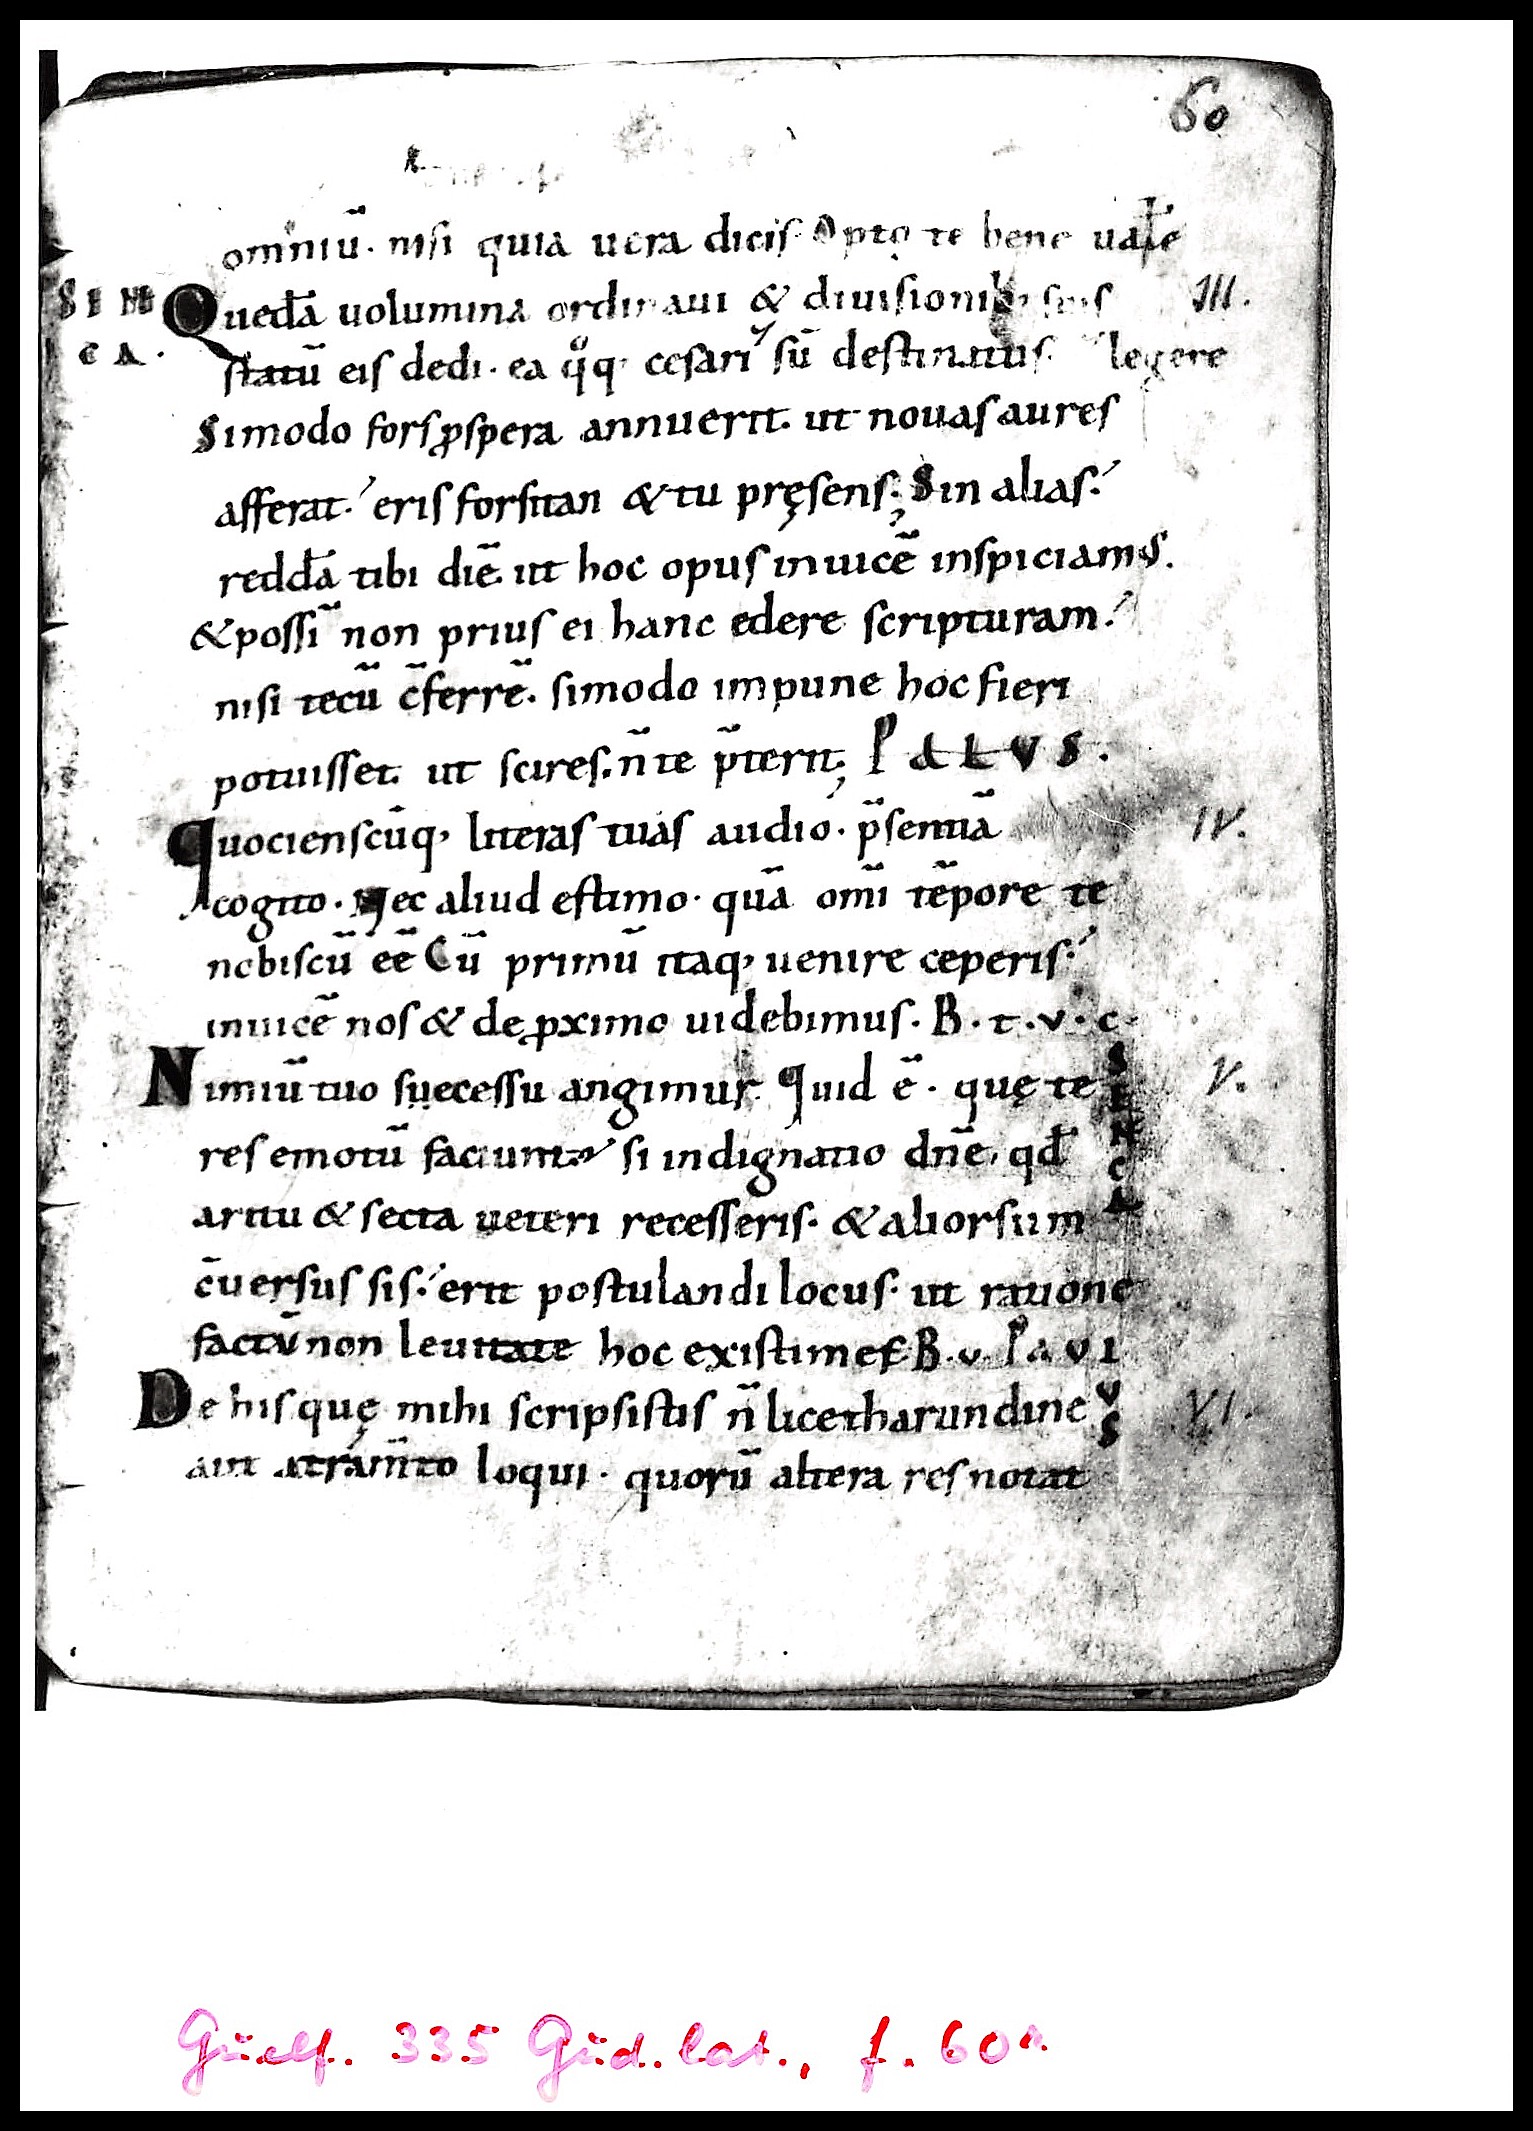 60
omniū. nisi quia uera dicis. Opto te bene uaƚe
SENE Quedā uolumina ordinaui & diuisionib; suis III.
CA. statū eis dedi. ea q̊q; cesari sū destinatus. legere
Si modo fors ꝓspera annuerit. ut nouas aures
afferat. eris forsitan & tu pręsens. Sin alias.
reddā tibi diē. ut hoc opus inuicē inspiciamus.
& possī non prius ei hanc edere scripturam.
nisi tecū c̄ferrē. si modo impune hoc fieri
potuisset. ut scires. n̄ te p̄terit; PALVS.
Quocienscūq; literas tuas audio. p̄sentiā IV.
cogito. Nec aliud estimo. quā om̄i tēpore te
nobiscū eē Cū primū itaq; uenire ceperis.
inuicē nos & de ꝓximo uidebimus. B. t. v. c.
Nimiū tuo suecessu angimur. Quid ē. quę te SENCA V.
res emotū faciunt. si indignatio dn̄e. qđ
a ritu & secta ueteri recesseris. & aliorsum
c̄uersus sis. erit postulandi locus. ut ratione
factū non leuitate hoc existimes B. v. PAVLVS
De his quę mihi scripsistis n̄ licet harundine VI.
aut atram̄to loqui. quorū altera res notat
Guelf. 335 Gud. lat., f. 60r